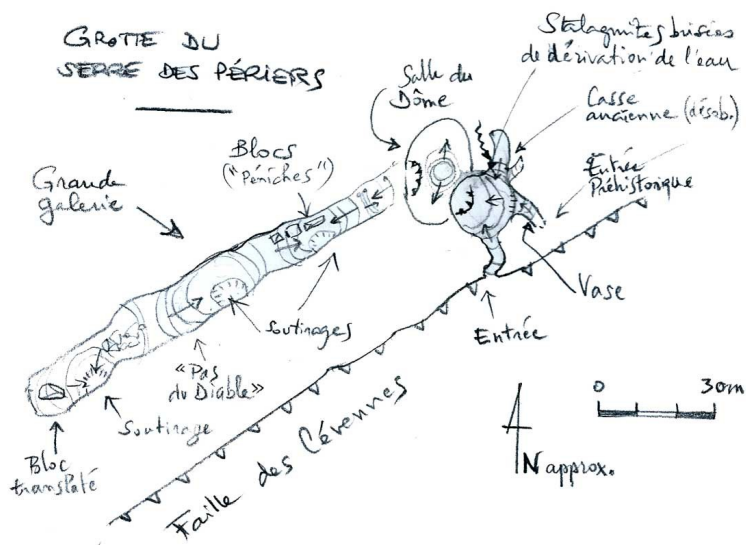 GROTTE DU
SERRE DES PÉRIERS
Stalagmites brisées
de dérivation de l'eau
Salle du
Dôme
Casse
ancienne (désob.)
Blocs
("Péniches")
Entrée
Préhistorique
Grande
galerie
Vase
Entrée
Soutirages
"Pas
du Diable"
Soutirage
Bloc
translaté
Faille des Cévennes
0 30m
N approx.